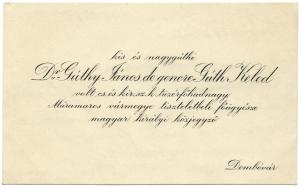 kis és nagygúthi
Dr. Gúthy János de genere Gúth Keled
volt cs. és kir. sz. k. tüzérfőhadnagy
Máramaros vármegye tiszteletbeli főügyésze
magyar királyi közjegyző
Dombóvár